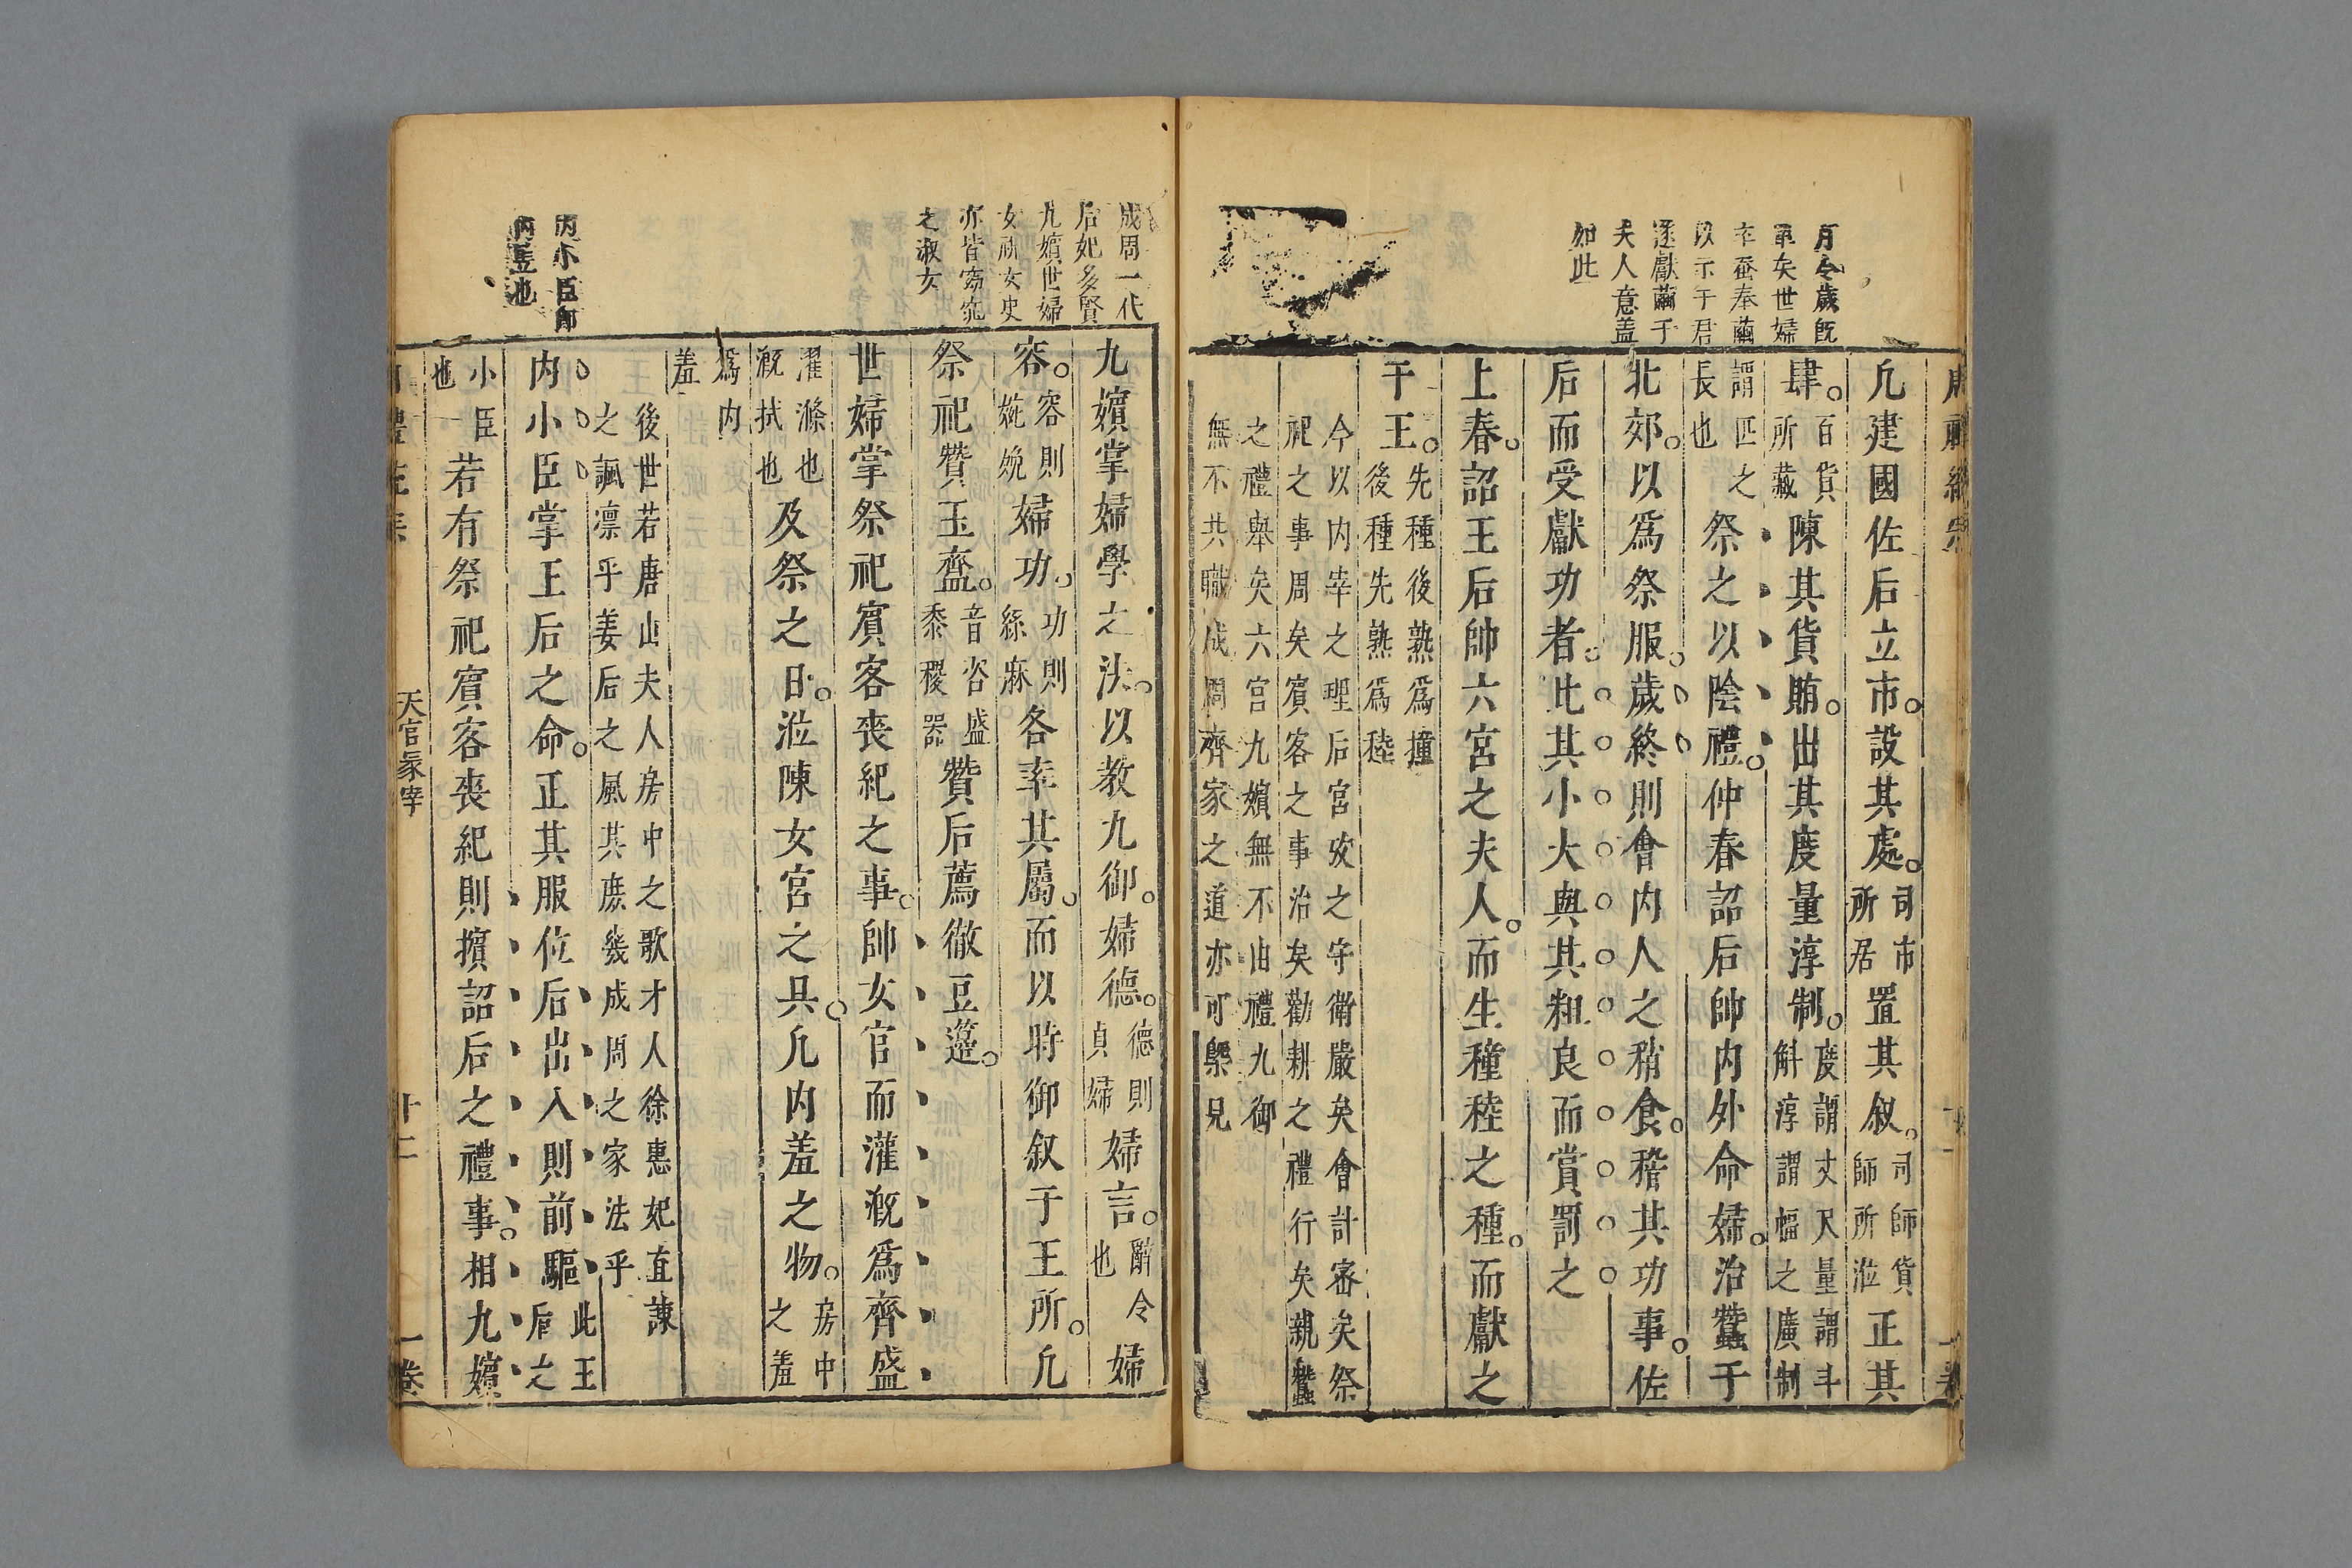 月令歲旣
單矣世婦
卒蚕奉繭
以示于君
遂獻繭于
夫人意蓋
如此
凢建國佐后立市。設其處。司市所居置其叙。司師貨師所涖正其
肆。百貨所藏陳其貨賄。出其度量淳制。度謂丈尺量謂斗斛淳謂幅之廣制
謂匹之長也祭之以陰禮。仲春詔后帥内外命婦。治蠶于
北郊。以爲祭服。歲終則會内人之稍食。稽其功事。佐
后而受獻功者。比其小大與其粗良而賞罰之
上春。詔王后帥六宮之夫人。而生穜稑之種。而獻之
于王。先種後熟爲穜後種先熟爲稑
今以内宰之理后宮攷之守衛嚴矣會計審矣祭
祀之事周矣賓客之事治矣勸耕之禮行矣親蠶
之禮舉矣六宮九嬪無不由禮九御
無不共職成周齊家之道亦可槩見
成周一代
后妃多賢
九嬪世婦
女祝女史
亦皆窈窕
之淑女
九嬪掌婦學之法。以教九御。婦德。德則貞婦婦言。辭令也婦
容。容則婉娩婦功。功則絲麻各率其屬。而以時御叙于王所。凢
祭祀贊玉齍。音咨盛黍稷器贊后薦徹豆籩。
世婦掌祭祀賓客喪紀之事。帥女官而灌漑爲齊盛
濯滌也漑拭也及祭之日。涖陳女宮之具。凢内羞之物。房中之羞
爲内
羞
後世若唐山夫人房中之歌才人徐惠妃直諫
之諷凛乎姜后之風其庶幾成周之家法乎
内小臣即
内豎也
内小臣掌王后之命。正其服位后出入則前驅此王后之
小臣也若有祭祀賓客喪紀則擯詔后之禮事。相九嬪
天官冢宰
十二
一卷